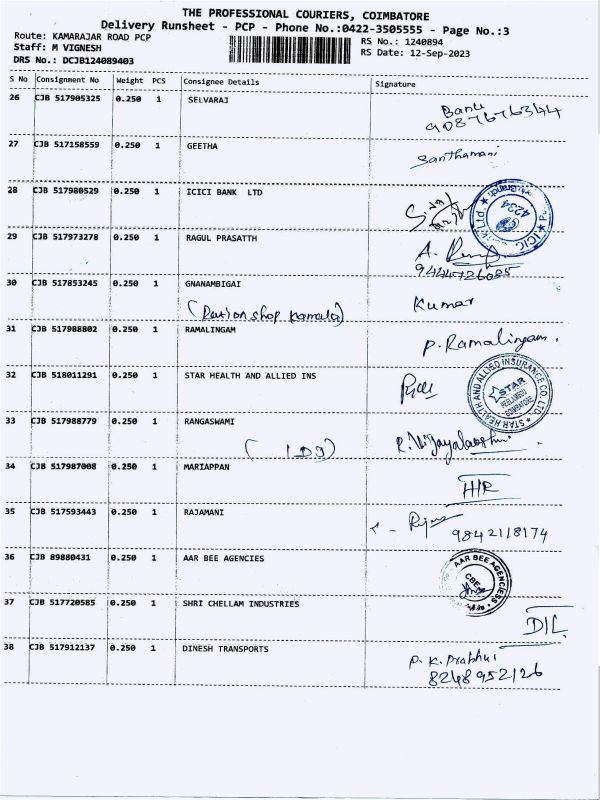 THE PROFESSIONAL COURIERS, COIMBATORE
Delivery Runsheet - PCP - Phone No.:0422-3505555 - Page No.:3
Route: KAMARAJAR ROAD PCP
RS No.: 1240894
Staff: M VIGNESH
RS Date: 12-Sep-2023
DRS No.: DCJB124089403
S No Consignment No Weight PCS Consignee Details Signature
26 CJB 517905325 0.250 1 SELVARAJ
9087676344
27 CJB 517158559 0.250 1 GEETHA Santhamani
28 CJB 517980529 0.250 1 ICICI BANK LTD
4234
29 CJB 517973278 0.250 1 RAGUL PRASATTH A.
9444726085
30 CJB 517853245 0.250 1 GNANAMBIGAI Kumar
(Ration shop Kamala)
31 CJB 517988802 0.250 1 RAMALINGAM P. Ramalingam.
32 CJB 518011291 0.250 1 STAR HEALTH AND ALLIED INS
STAR HEALTH AND ALLIED INSURANCE CO. LTD.
STAR
COIMBATORE
33 CJB 517988779 0.250 1 RANGASWAMI R. Vijayalakshmi
34 CJB 517987008 0.250 1 MARIAPPAN
35 CJB 517593443 0.250 1 RAJAMANI
9842118174
36 CJB 89880431 0.250 1 AAR BEE AGENCIES
AAR BEE AGENCIESS
CBE
37 CJB 517720585 0.250 1 SHRI CHELLAM INDUSTRIES
38 CJB 517912137 0.250 1 DINESH TRANSPORTS P. K. Prabhu
8248952126